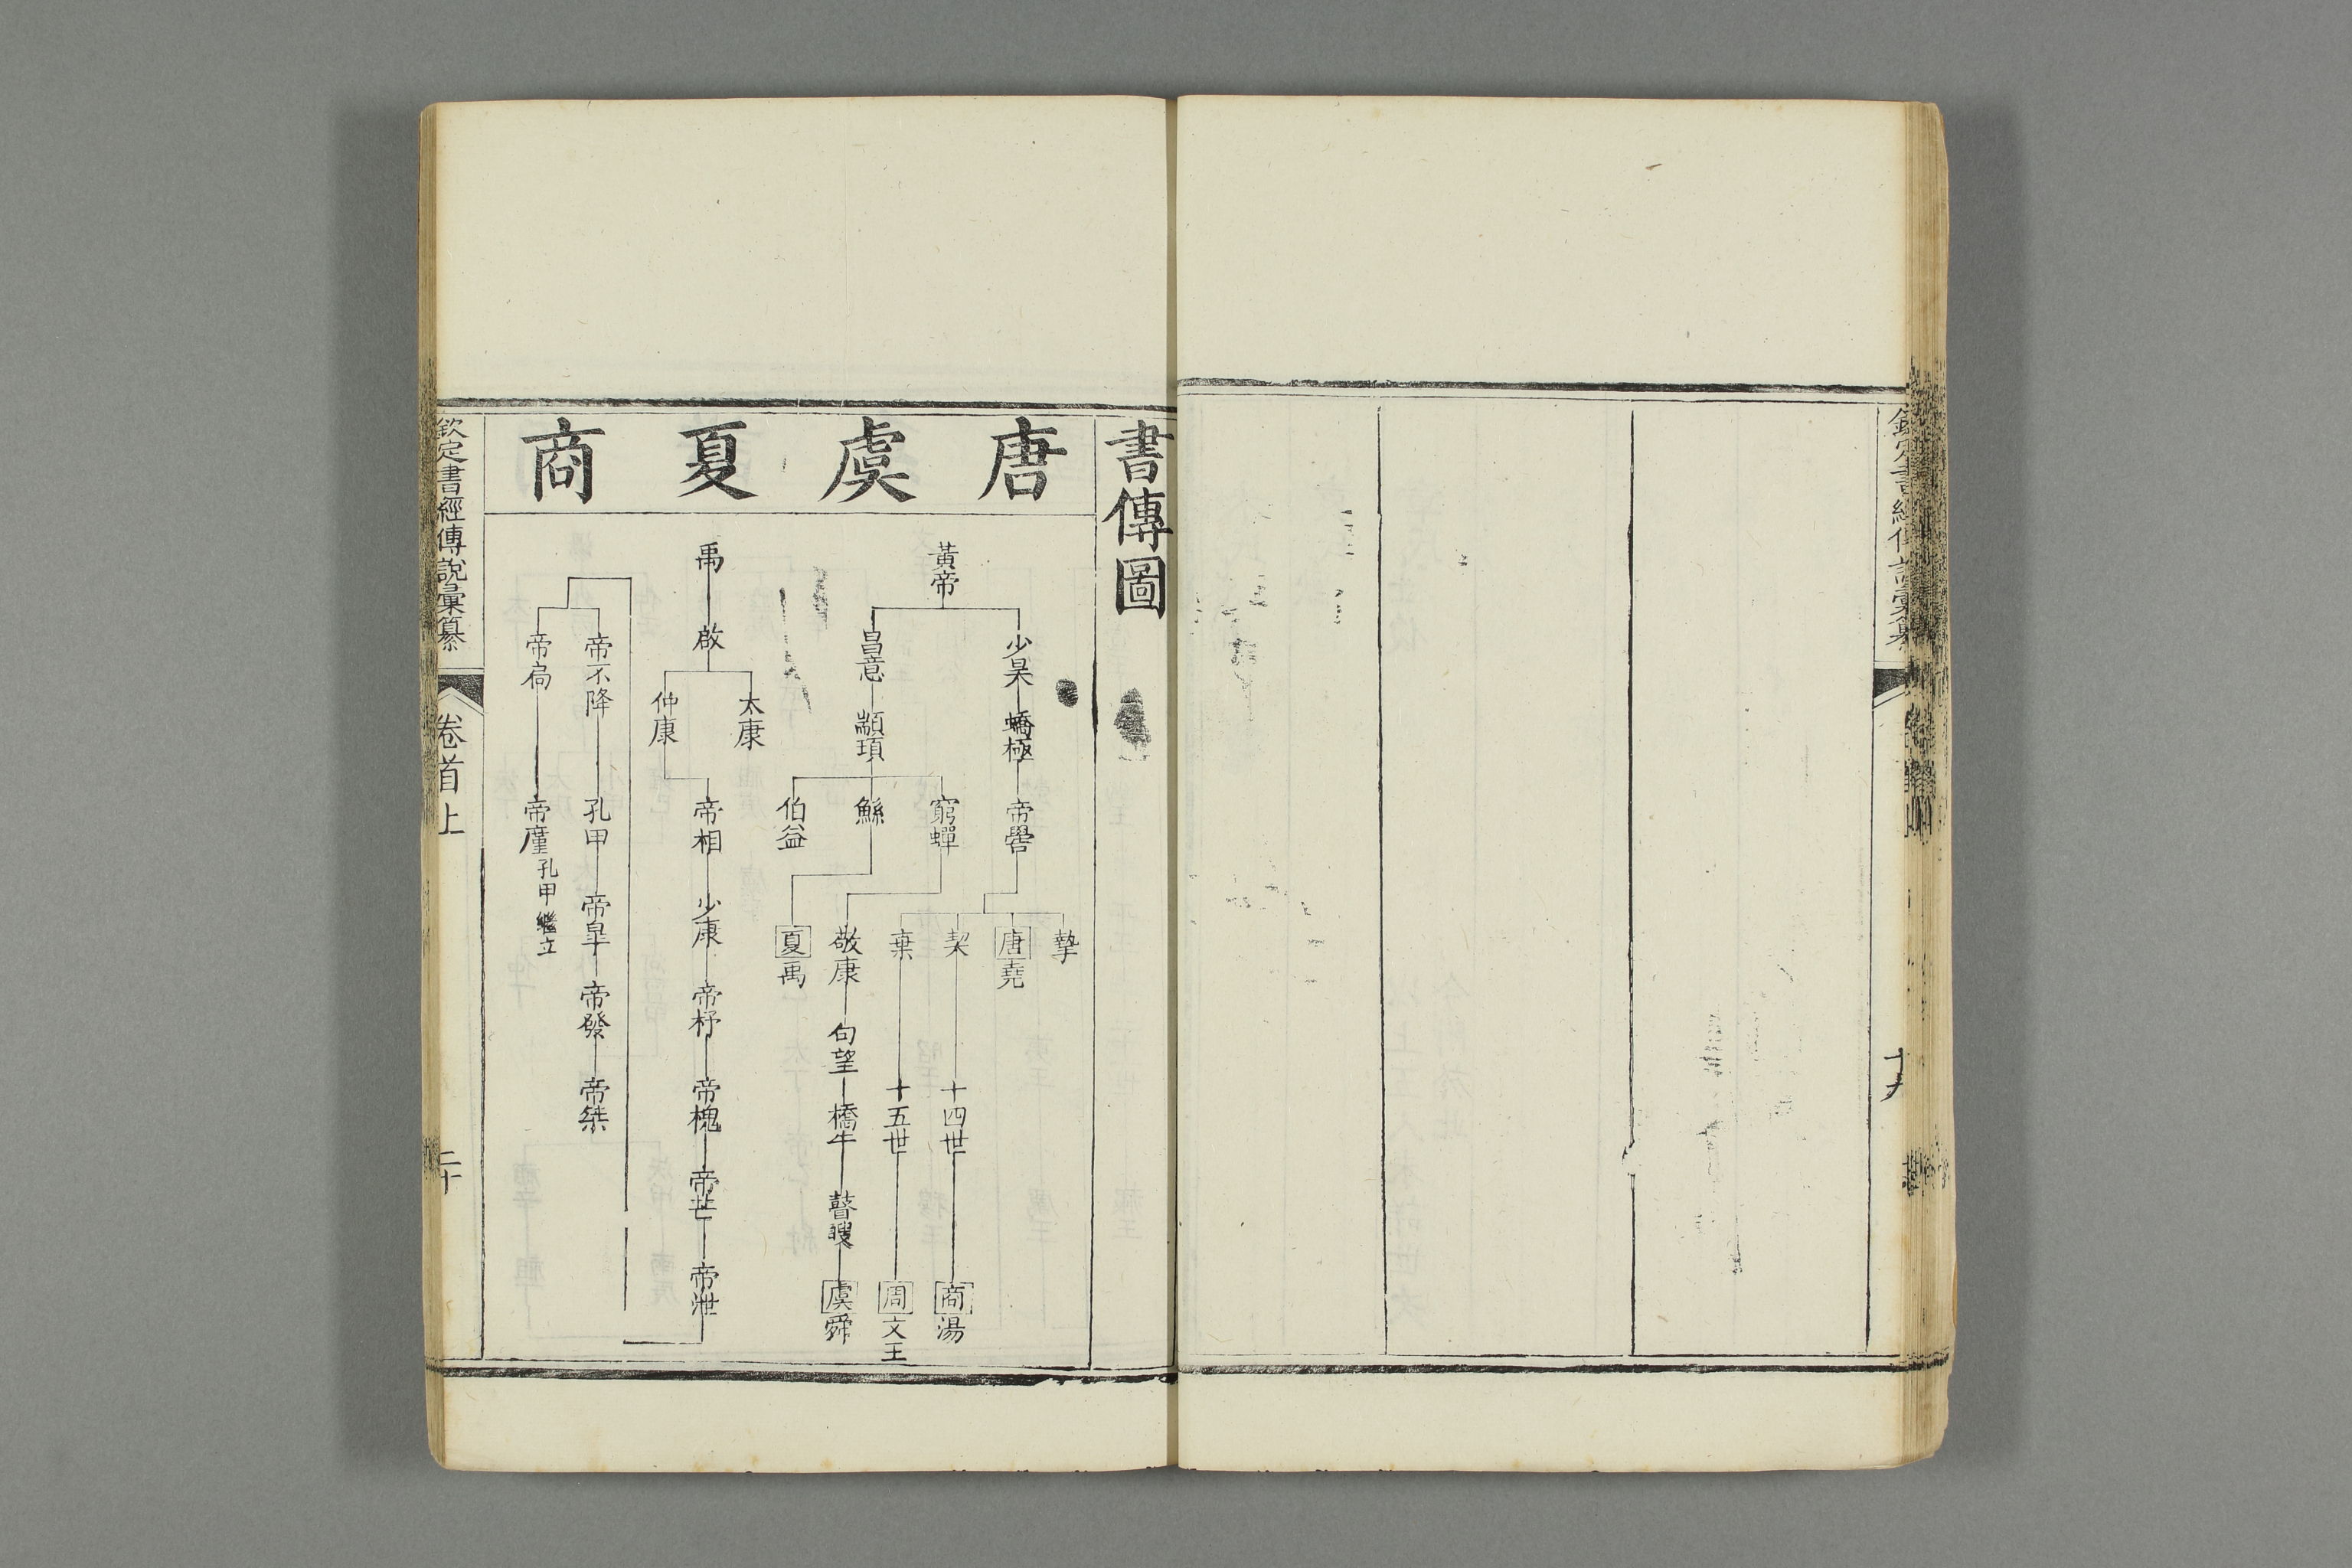 欽定書經傳說彙纂
書傳圖
唐虞夏商
黃帝
少昊
蟜極
帝嚳
摯
唐堯
契
十四世
商湯
棄
十五世
周文王
昌意
顓頊
窮蟬
敬康
句望
橋牛
瞽瞍
虞舜
鯀
夏禹
伯益
禹
啟
太康
仲康
帝相
少康
帝杼
帝槐
帝芒
帝泄
帝不降
孔甲
帝皐
帝發
帝桀
帝扃
帝廑孔甲繼立
欽定書經傳說彙纂
卷首上
二十